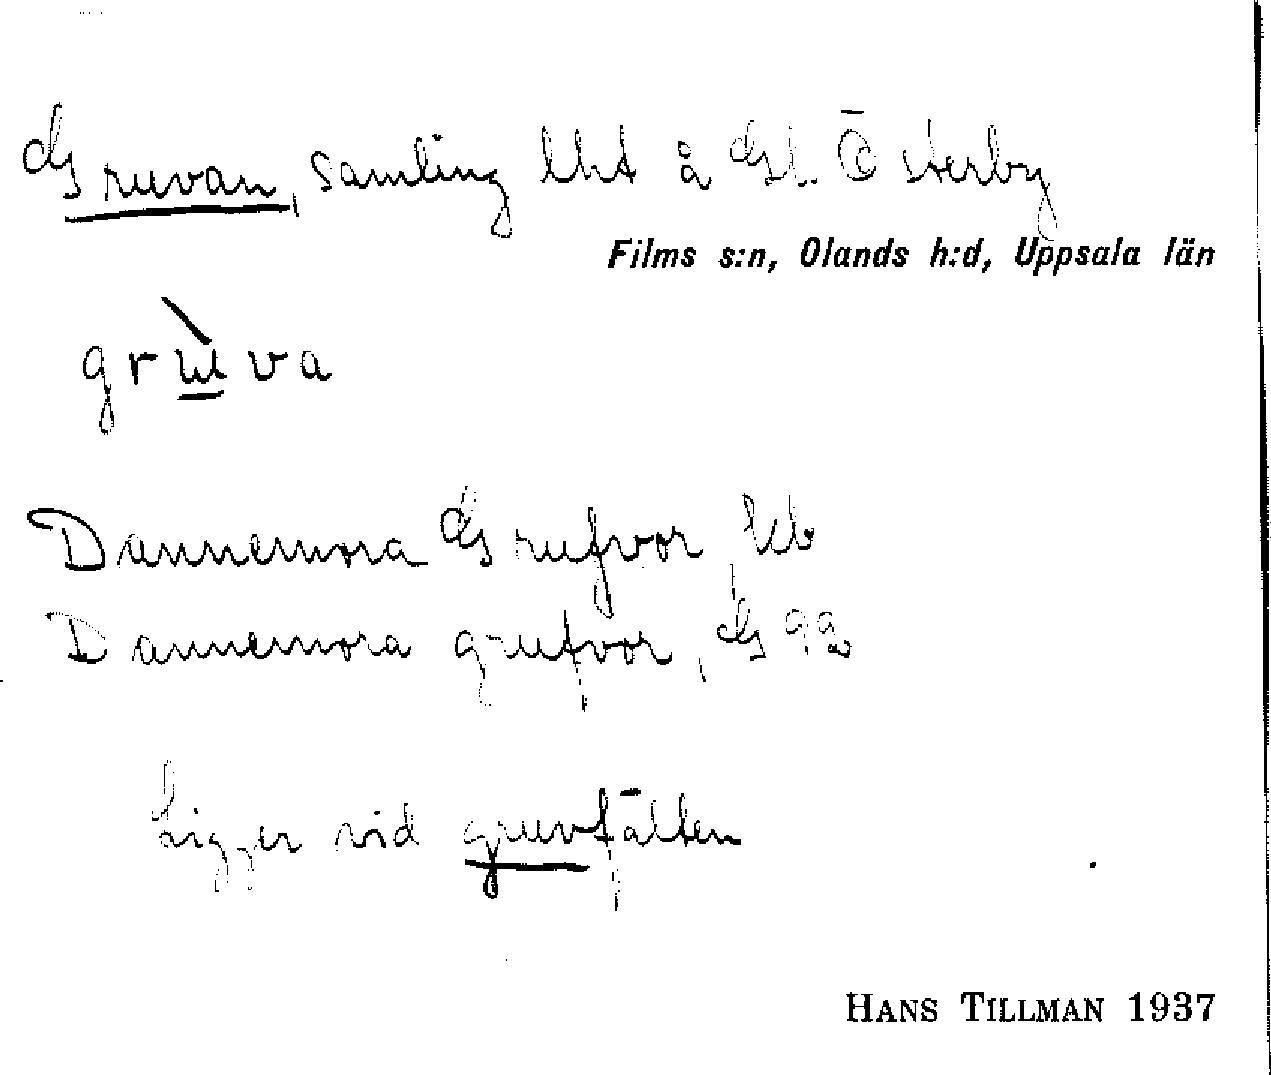 Gruvan, samling lht å Gsl. Österby
Films s:n, Olands h:d, Uppsala län
grùva
Dannemora Grufvor, kb
Dannemora grufvor, G
Ligger vid gruvfälten
HANS TILLMAN 1937